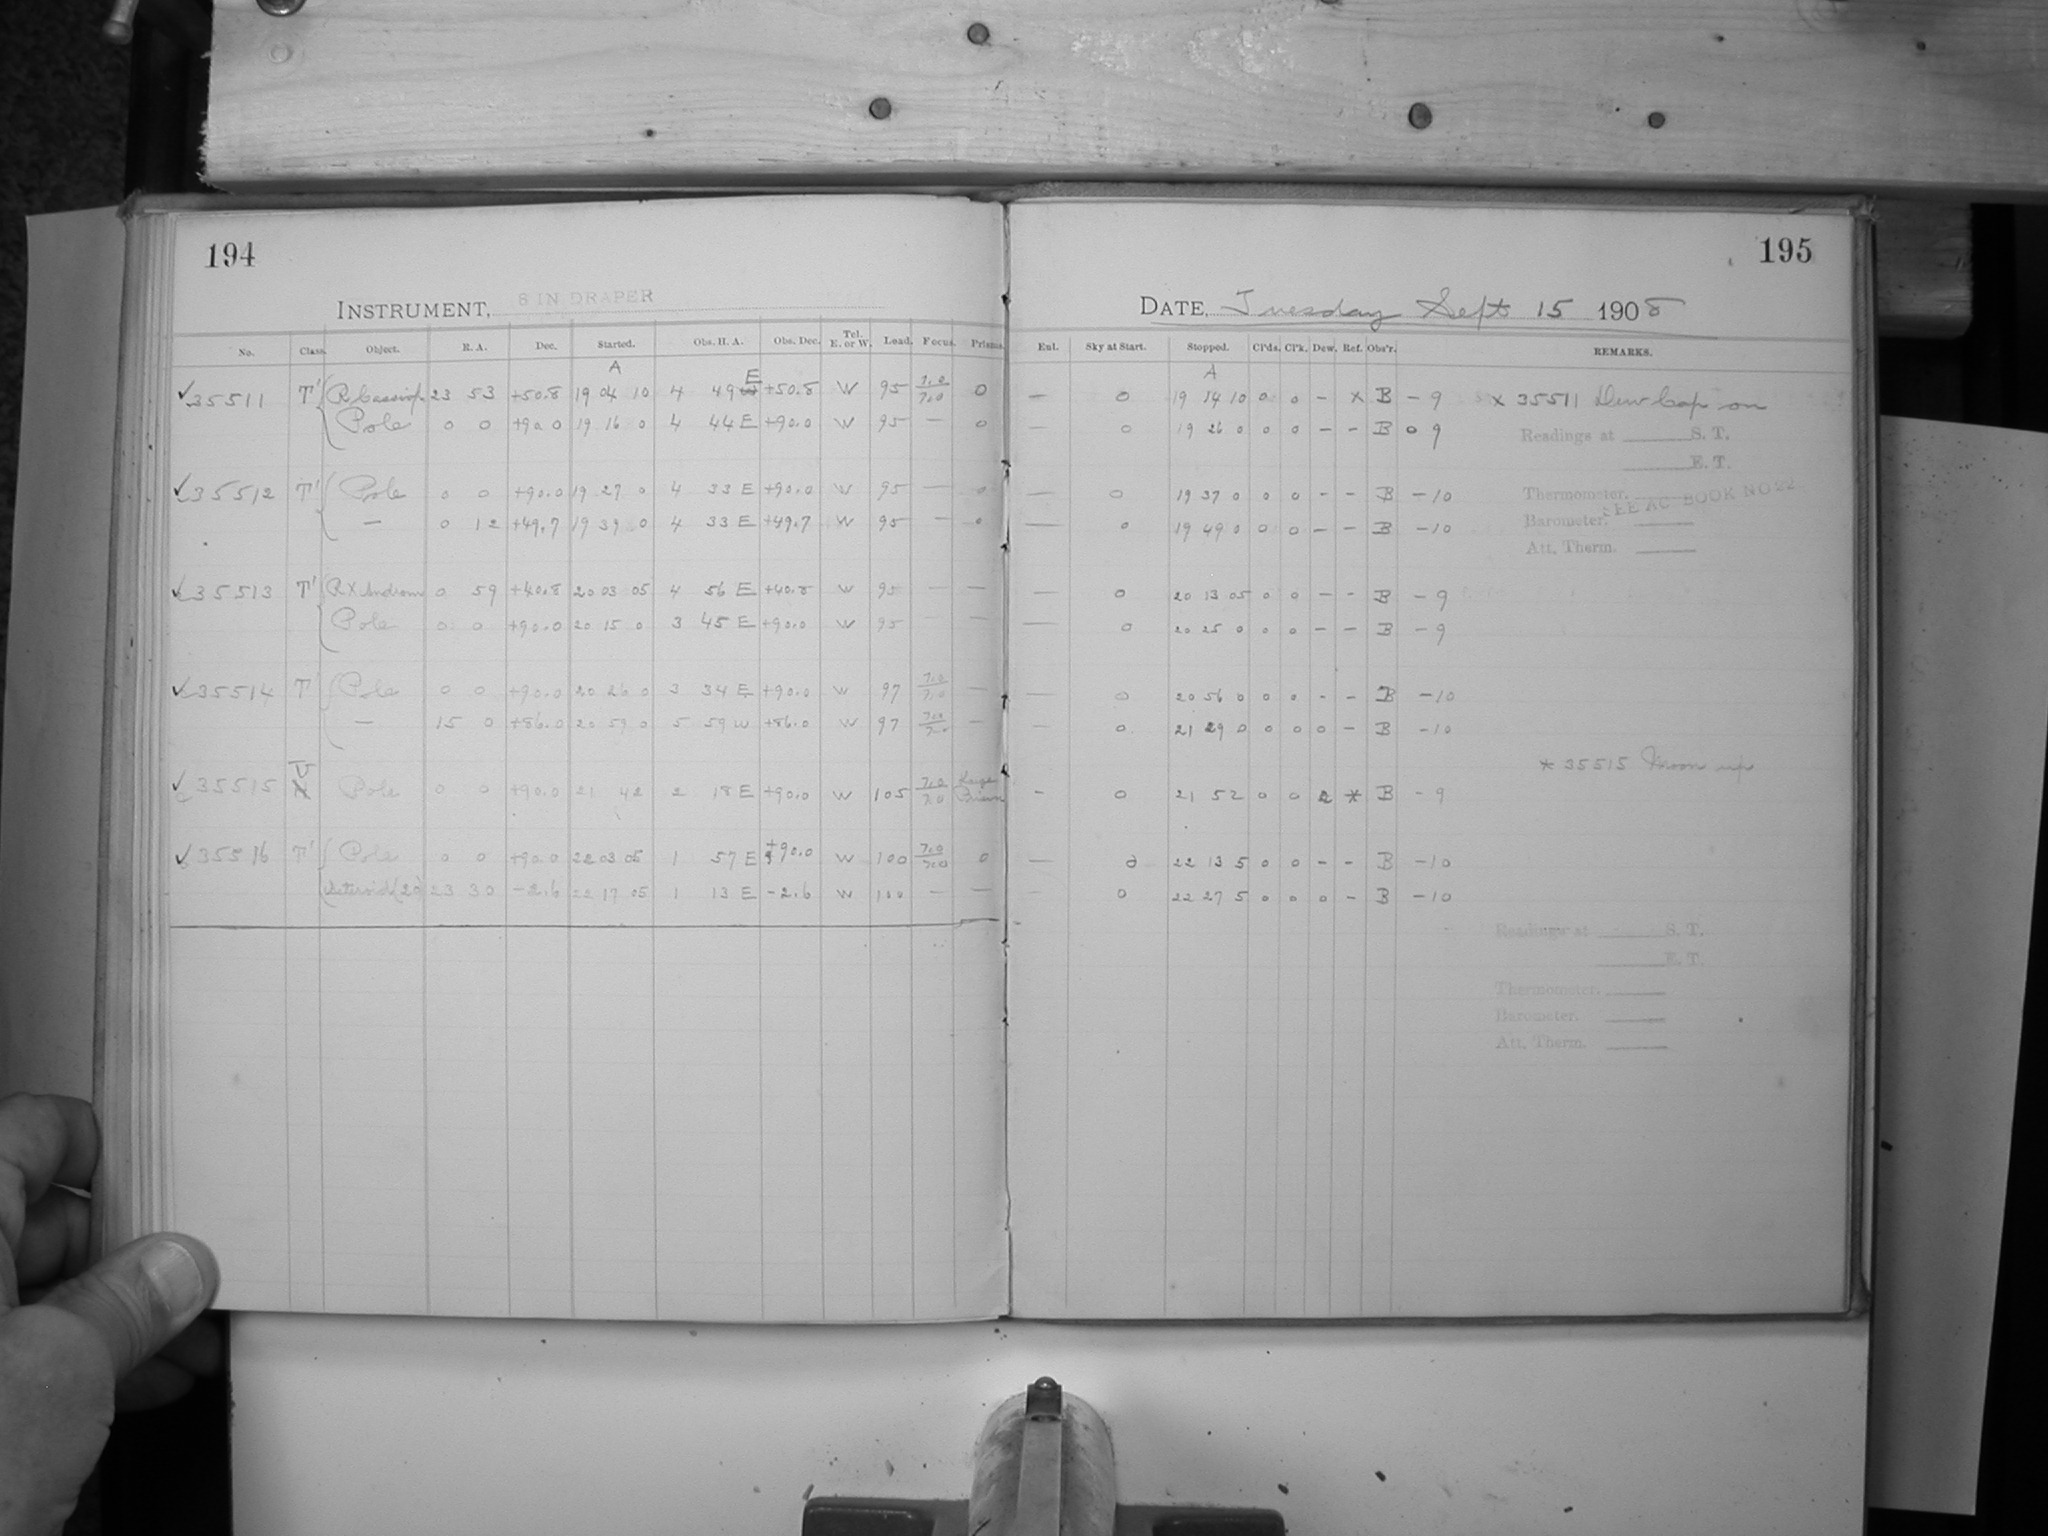 194
INSTRUMENT, 8 IN DRAPER
No. Class. Object. R. A. Dec. Started. Obs. H. A. Obs. Dec. Tel. E. or W. Load. Focus. Prisms.
A
✓35511 T' R Cassiop. 23 53 +50.8 19 04 10 4 49 E +50.8 W 95 7.0/7.0 0
Pole 0 0 +90.0 19 16 0 4 44 E +90.0 W 95 — 0
✓35512 T' Pole 0 0 +90.0 19 27 0 4 33 E +90.0 W 95 — 0
— 0 12 +49.7 19 39 0 4 33 E +49.7 W 95 — 0
✓35513 T' RX Androm 0 59 +40.8 20 03 05 4 56 E +40.8 W 95 — —
Pole 0 0 +90.0 20 15 0 3 45 E +90.0 W 95 — —
✓35514 T Pole 0 0 +90.0 20 26 0 3 34 E +90.0 W 97 7.0/7.0 —
— 15 0 +86.0 20 59 0 5 59 W +86.0 W 97 7.0/7.0 —
✓35515 Pole 0 0 +90.0 21 42 2 18 E +90.0 W 105 7.0/7.0 Large Prism
✓35516 T' Pole 0 0 +90.0 22 03 05 1 57 E +90.0 W 100 7.0/7.0 0
Asteroid (20) 23 30 -2.6 22 17 05 1 13 E -2.6 W 100 — —
195
DATE, Tuesday Sept 15 1908
Ext. Sky at Start. Stopped. Cl'ds. Cl'k. Dew. Ref. Obs'r. REMARKS.
A
— 0 19 14 10 0 0 - x B - 9 x 35511 Dew Cap on
— 0 19 26 0 0 0 - - B 0 9 Readings at S. T.
E. T.
— 0 19 37 0 0 0 - - B -10 Thermometer.
SEE AC BOOK NO 22
— 0 19 49 0 0 0 - - B -10 Barometer.
Att. Therm.
— 0 20 13 05 0 0 - - B - 9
— 0 20 25 0 0 0 - - B - 9
— 0 20 56 0 0 0 - - B -10
— 0 21 29 0 0 0 0 - B -10
* 35515 Moon up
- 0 21 52 0 0 2 * B - 9
— 0 22 13 5 0 0 - - B -10
— 0 22 27 5 0 0 0 - B -10
Readings at S. T.
E. T.
Thermometer.
Barometer.
Att. Therm.